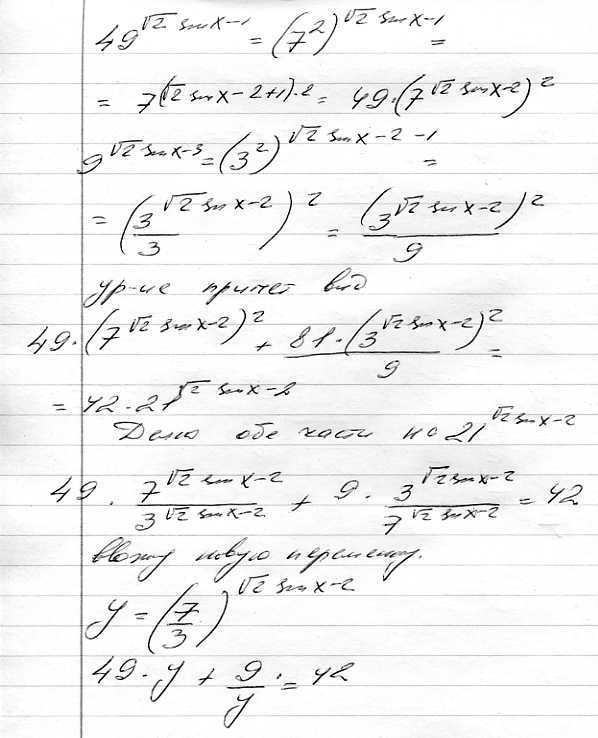 49^(√2 sinx−1) = (7²)^(√2 sinx−1) =
= 7^((√2 sinx−2+1)·2) = 49·(7^(√2 sinx−2))²
9^(√2 sinx−3) = (3²)^(√2 sinx−2−1) =
= (3^(√2 sinx−2)/3)² = (3^(√2 sinx−2))²/9
ур-ие примет вид
49·(7^(√2 sinx−2))² + 81·(3^(√2 sinx−2))²/9 =
= 42·21^(√2 sinx−2)
Делю обе части на 21^(√2 sinx−2)
49 · 7^(√2 sinx−2)/3^(√2 sinx−2) + 9 · 3^(√2 sinx−2)/7^(√2 sinx−2) = 42
ввожу новую перемену.
y = (7/3)^(√2 sinx−2)
49·y + 9/y = 42